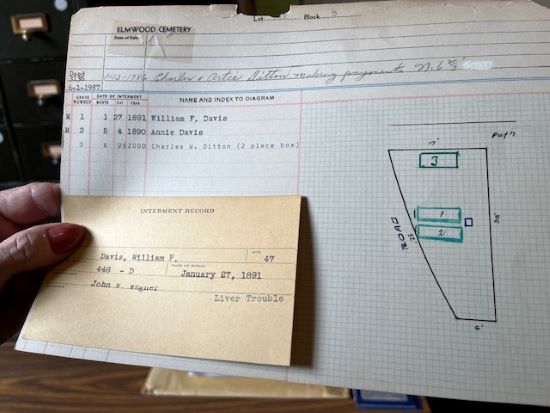 Lot Block 5
ELMWOOD CEMETERY
Date of Sale
Deed
6-1-1987
1-13-1986 Charles & Artie Ditton making payments N. 6 2/3
GRAVE NUMBER DATE OF INTERMENT MONTH DAY YEAR NAME AND INDEX TO DIAGRAM
M 1 1 27 1891 William F. Davis
M 2 5 4 1890 Annie Davis
3 6 28 2000 Charles M. Ditton (2 piece box)
Path
7'
3
1
2
ROAD
30'
6'
INTERMENT RECORD
Davis, William F. AGE 47
448 - D DATE OF BURIAL January 27, 1891
John W Wagner
Liver Trouble